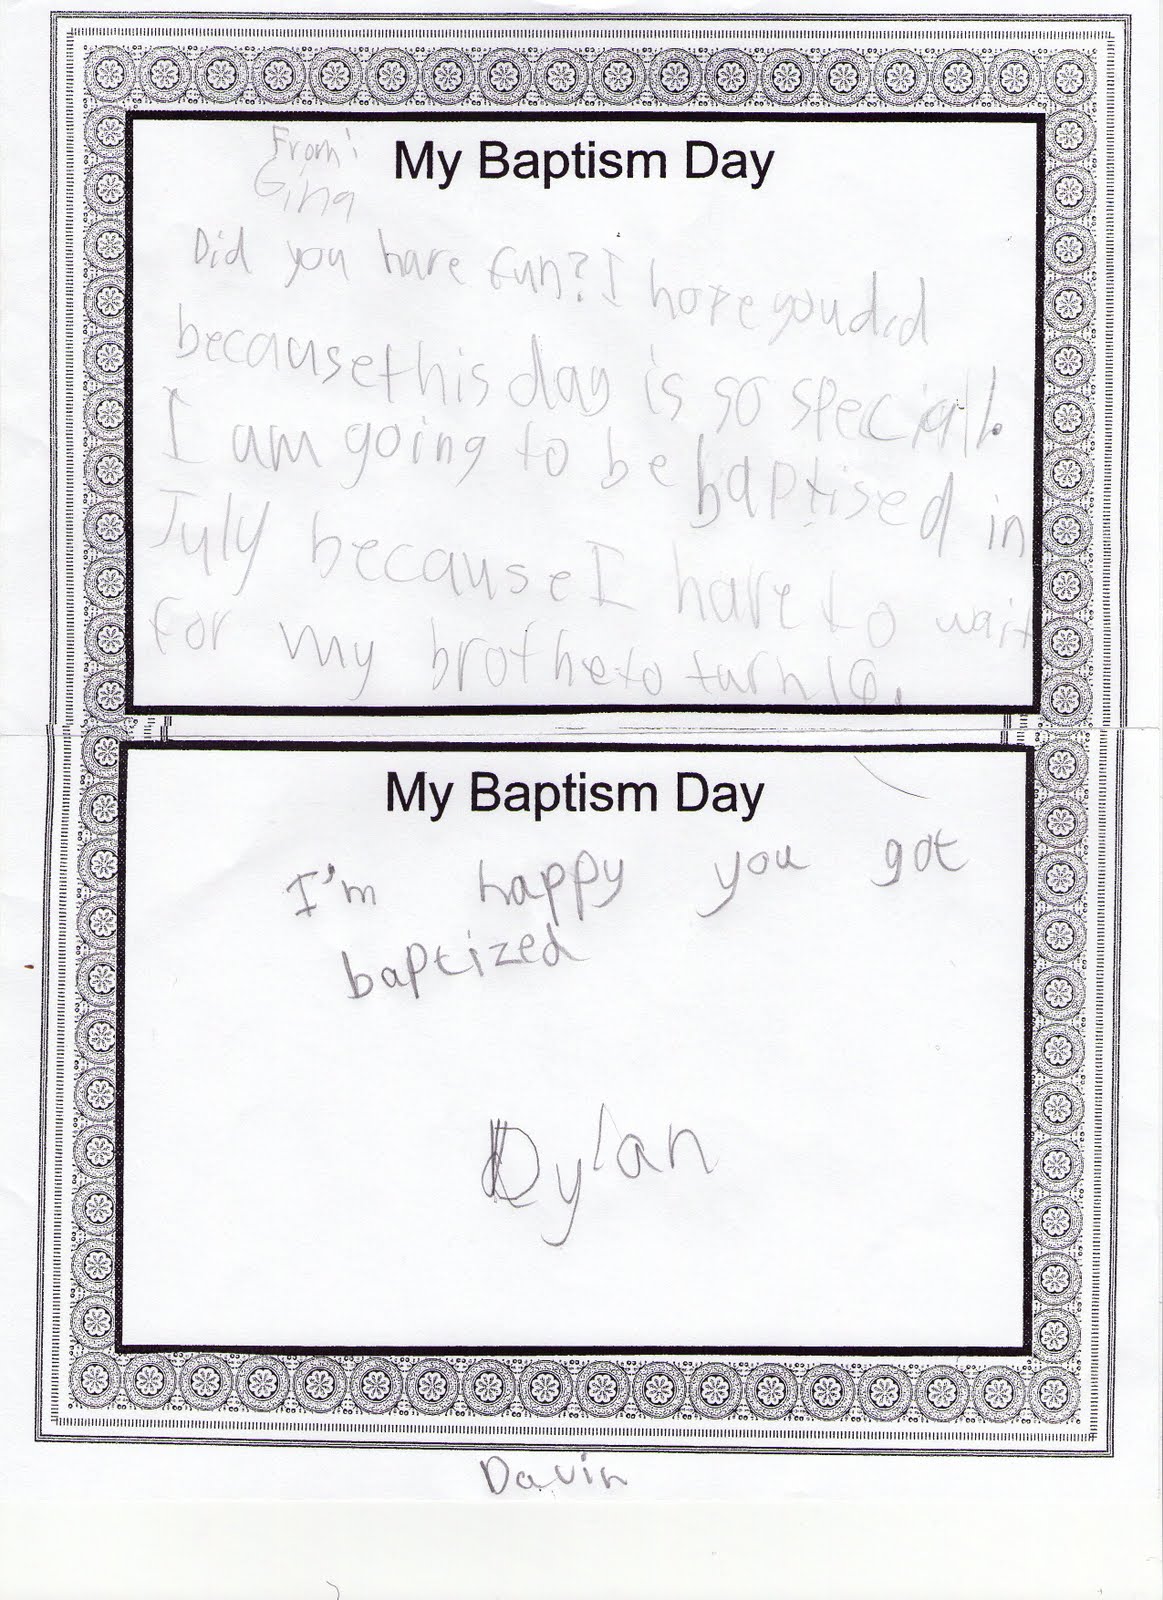 From:
Gina
My Baptism Day
Did you have fun? I hope you did
because this day is so speciall.
I am going to be baptised in
July because I have to wait
for my brothe to turn 16.
My Baptism Day
I'm happy you got
baptized
Dylan
Davin